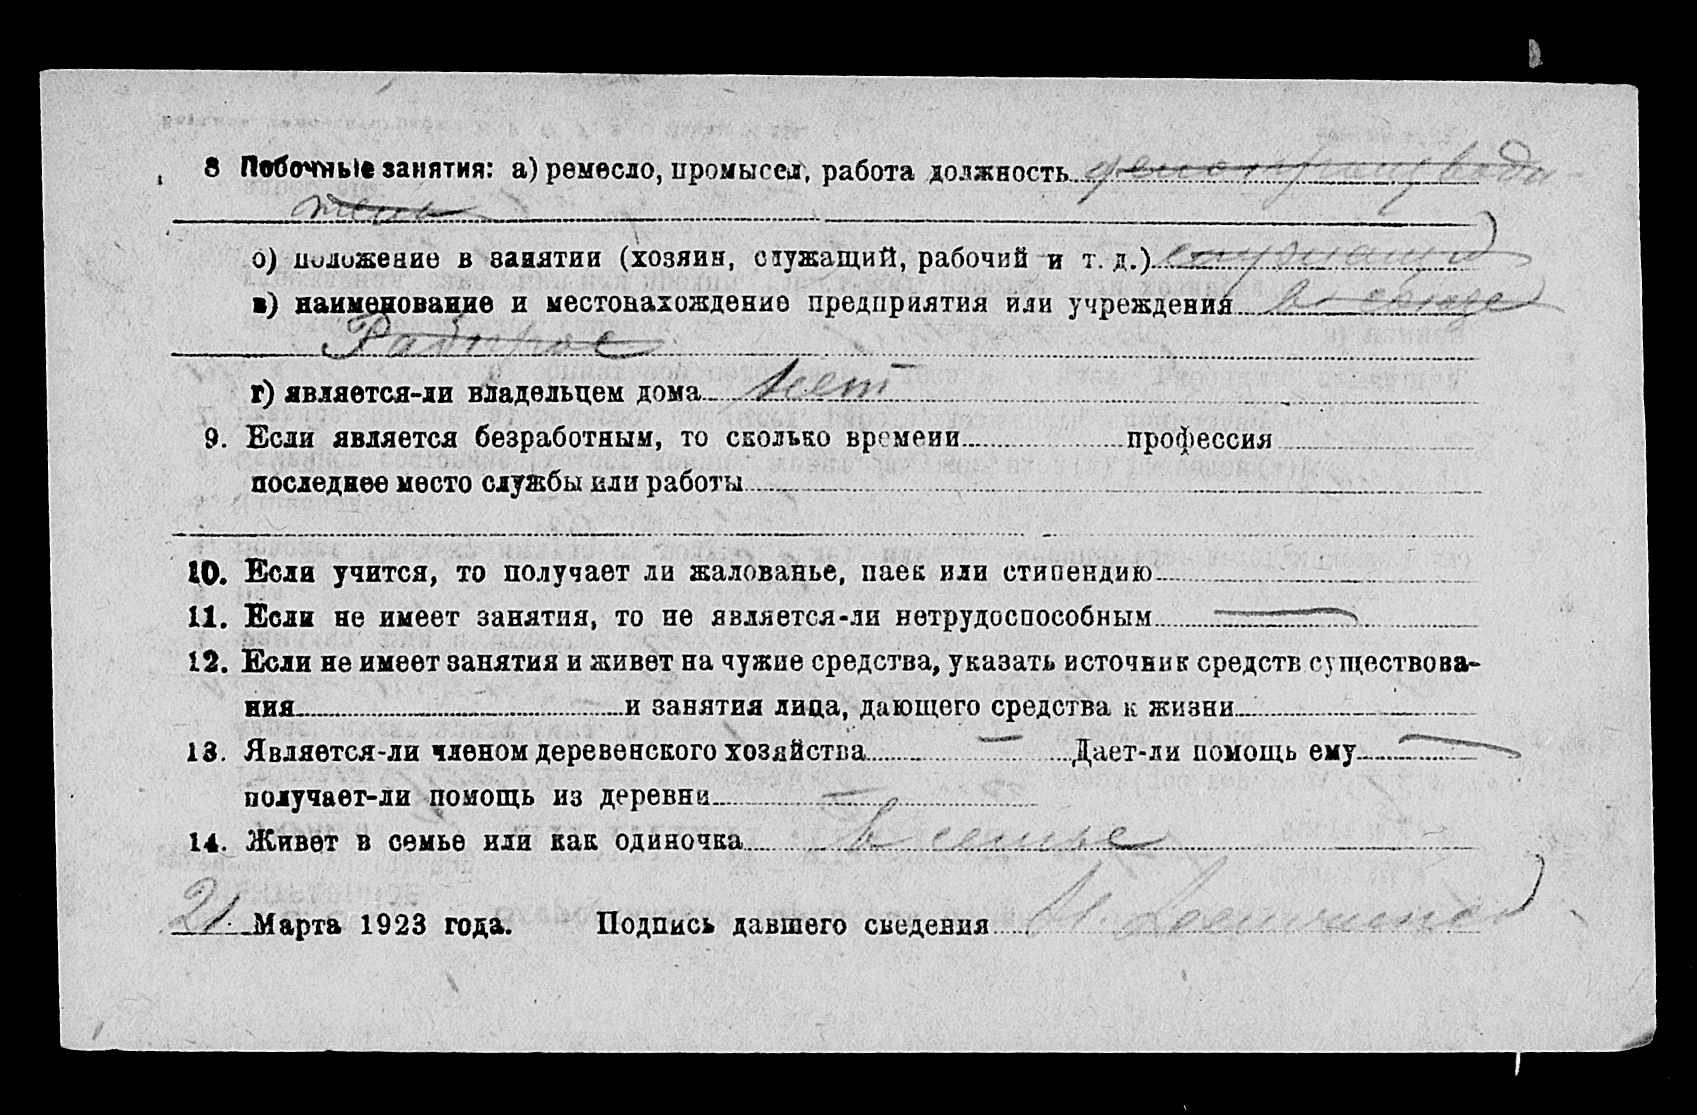 8 Побочные занятия: а) ремесло, промысел, работа должность делопроизводи-
тель
б) положение в занятии (хозяин, служащий, рабочий и т. д.) служащий
в) наименование и местонахождение предприятия или учреждения в союзе
Рабпрос
г) является-ли владельцем дома нет
9. Если является безработным, то сколько времени профессия
последнее место службы или работы
10. Если учится, то получает ли жалованье, паек или стипендию
11. Если не имеет занятия, то не является-ли нетрудоспособным —
12. Если не имеет занятия и живет на чужие средства, указать источник средств существова-
ния и занятия лица, дающего средства к жизни
13. Является-ли членом деревенского хозяйства — Дает-ли помощь ему —
получает-ли помощь из деревни —
14. Живет в семье или как одиночка в семье
21 Марта 1923 года. Подпись давшего сведения